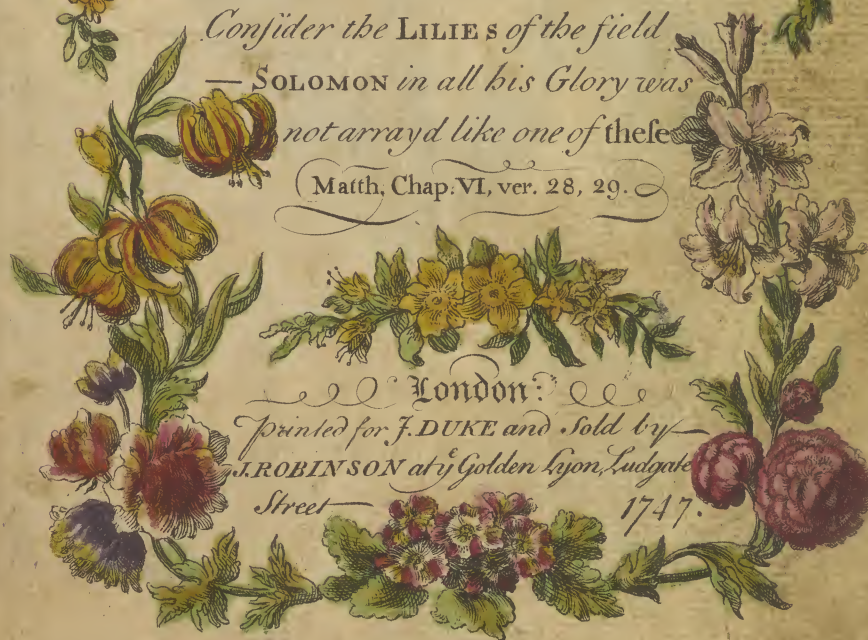 Conſider the LILIES of the field
— SOLOMON in all his Glory was
not array'd like one of theſe
Matth. Chap. VI, ver. 28, 29.
London:
Printed for J. DUKE and Sold by
J. ROBINSON at yᵉ Golden Lyon, Ludgate
Street — 1747.